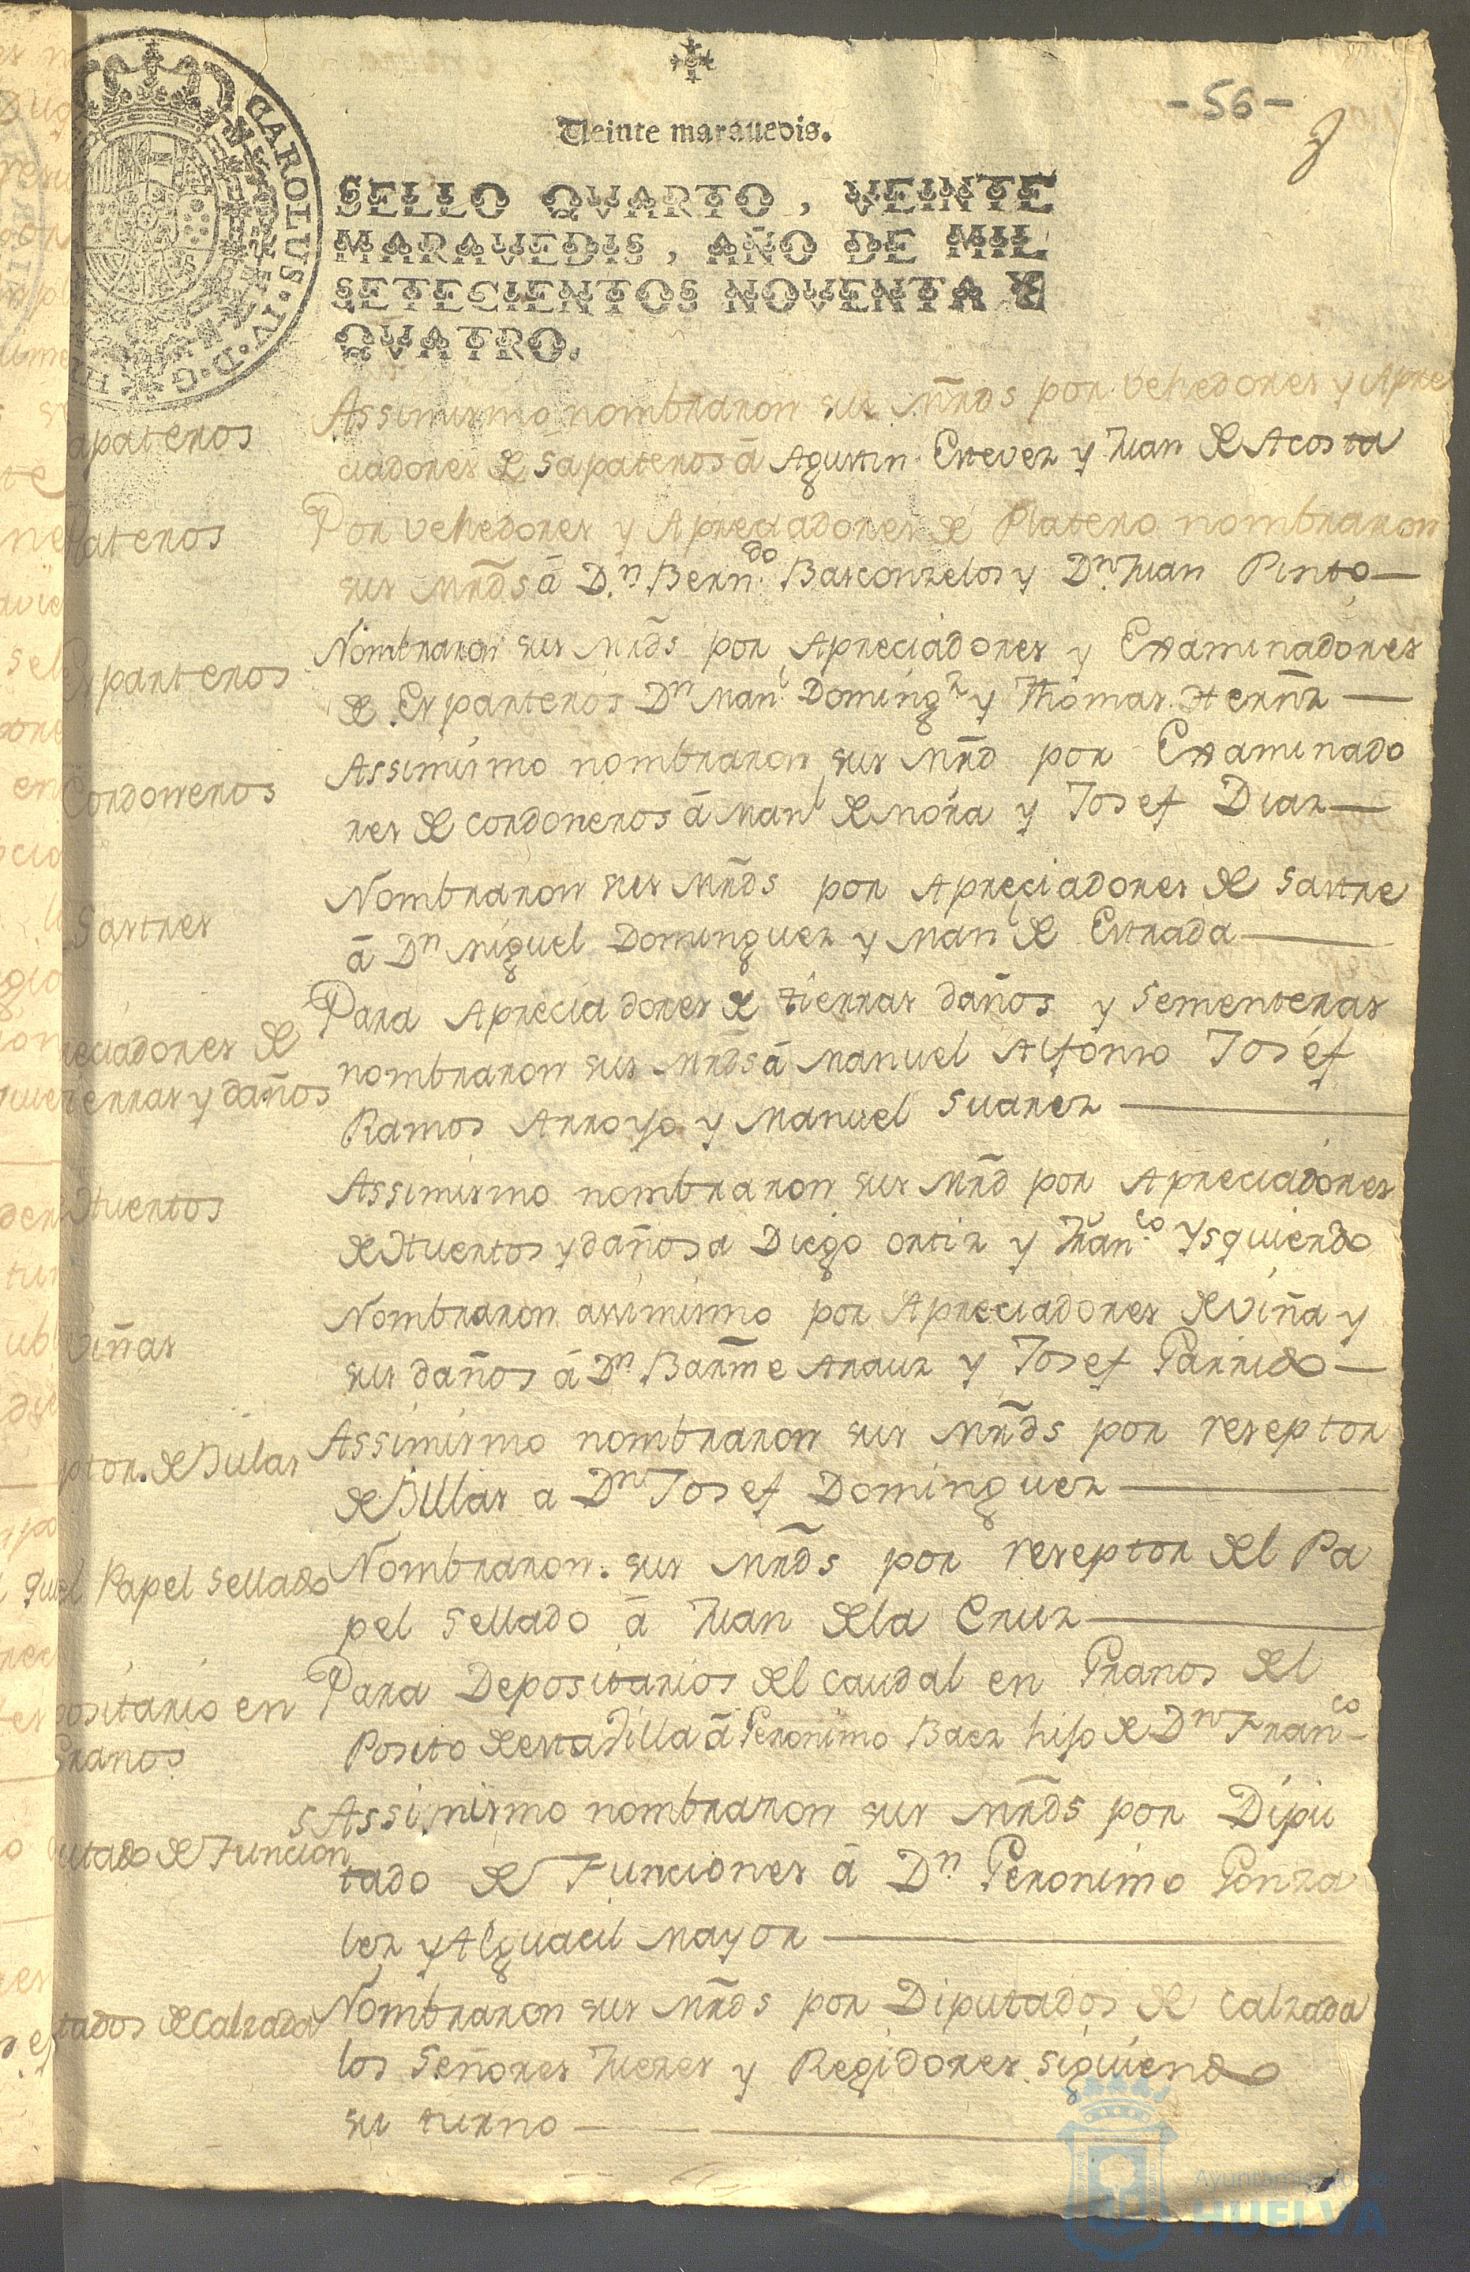 -56-
Veinte maravedis.
CAROLUS·IV·D·G·
SELLO QVARTO, VEINTE
MARAVEDIS, AÑO DE MIL
SETECIENTOS NOVENTA Y
QVATRO.
apateros
Assimismo nombraron sus Mrds por vehedores y Apre
ciadores de Sapateros á Agustin Estevez y Juan de Acosta
lateros
Por vehedores y Apreciadores de Platero nombraron
sus Mrds á Dn. Berndo. Basconzelos y Dn. Juan Pinto
Esparteros
Nombraron sus Mrds por Apreciadores y Examinadores
de Esparteros Dn Manl Domingz y Thomas Hernz
Cordoneros
Assimismo nombraron sus Mrd por Examinado
res de Cordoneros á Manl de Mora y Josef Diaz
Sastres
Nombraron sus Mrds por Apreciadores de Sastre
á Dn Miguel Dominguez y Manl de Estrada
reciadores de
tierras y daños
Para Apreciadores de tierras daños y Sementeras
nombraron sus Mrds á Manuel Alfonso Josef
Ramos Arroyo y Manuel Suarez
Huertos
Assimismo nombraron sus Mrd por Apreciadores
de Huertos y daños a Diego Ortiz y Franco. Ysquierdo
Viñas
Nombraron assimismo por Apreciadores de viña y
sus daños á Dn Barme Arauz y Josef Garrido
ptor. de Bulas
Assimismo nombraron sus Mrds por reseptor
de Bullas a Dn Josef Dominguez
el Papel Sellado
Nombraron sus Mrds por reseptor del Pa
pel Sellado á Juan de la Cruz
positario en
Granos
Para Depositarios del caudal en Granos del
Posito de esta Villa á Geronimo Baez hijo de Dn Franco
utado de Funcion
Assimismo nombraron sus Mrds por Dipu
tado de Funciones á Dn Geronimo Gonza
lez y Alguacil Mayor
tados de Calzada
Nombraron sus Mrds por Diputados de Calzada
los Señores Juezes y Regidores siguiendo
su turno
Ayuntamiento de
HUELVA